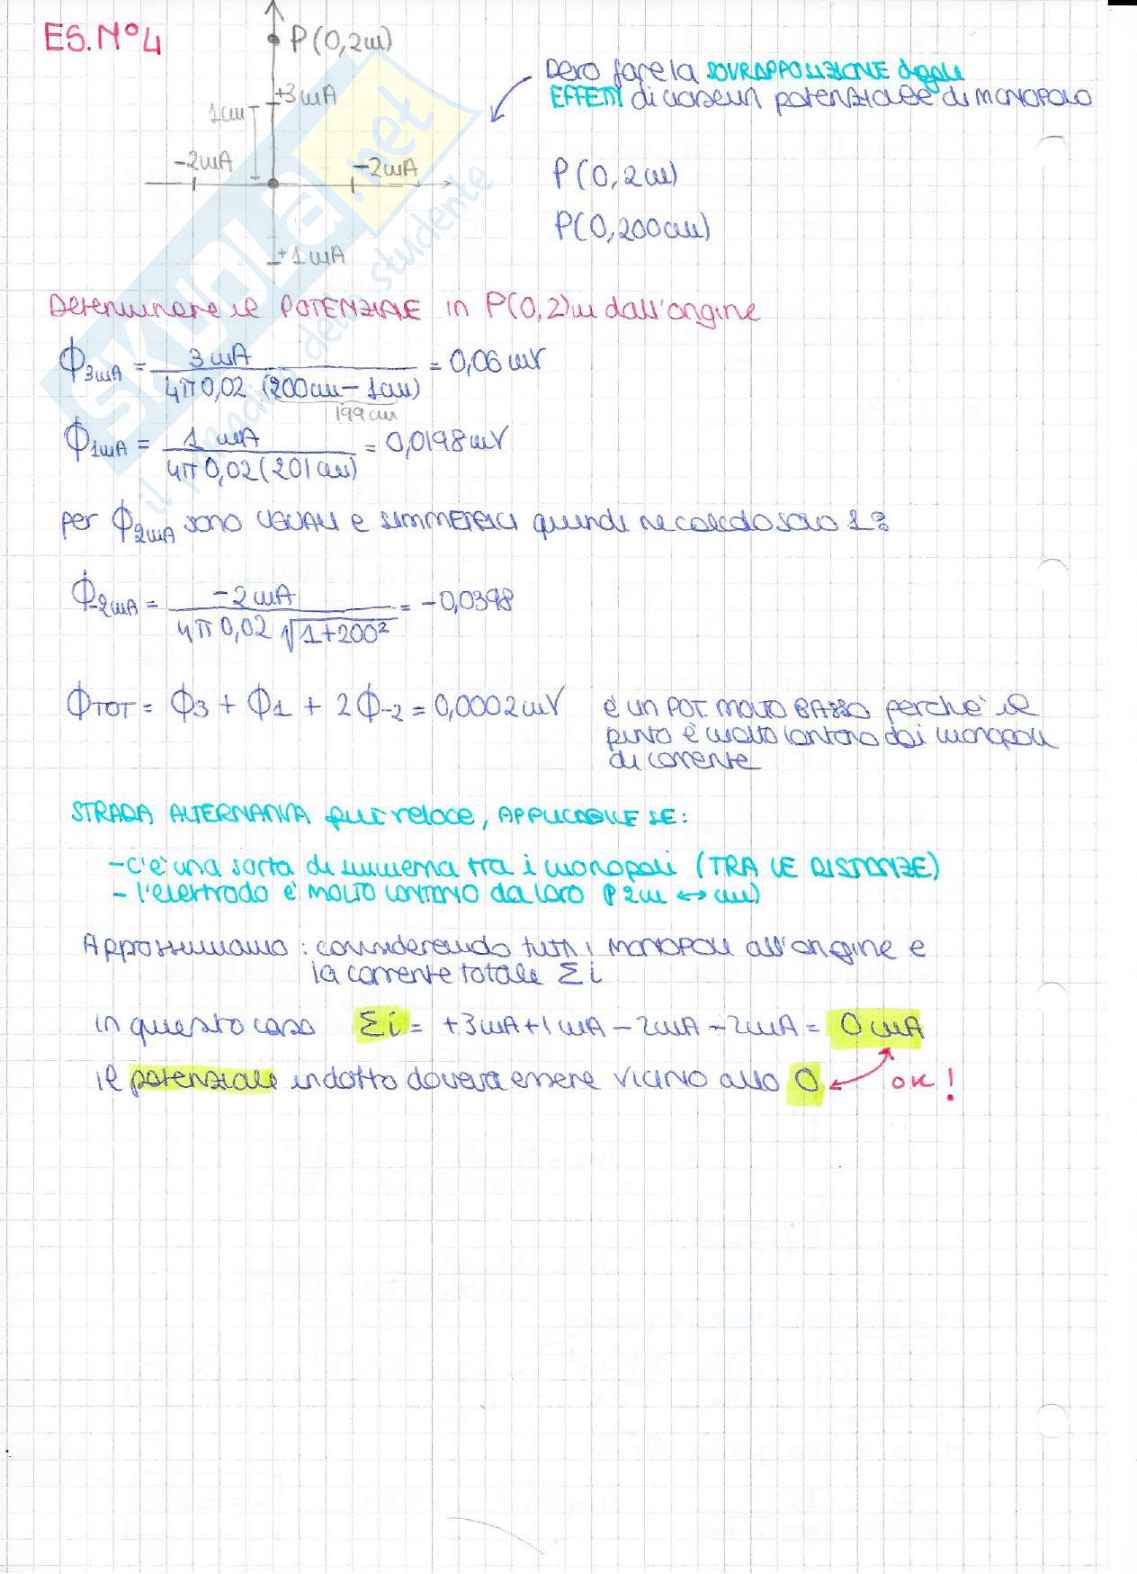 ES. N°4
P(0,2m)
+3mA
1cm
-2mA
-2mA
+1mA
Devo fare la SOVRAPPOSIZIONE degli
EFFETTI di ciascun potenziale di MONOPOLO
P(0,2m)
P(0,200cm)
Determinare il POTENZIALE in P(0,2)m dall'origine
Φ3mA = 3mA / 4π 0,02 (200cm - 1cm) = 0,06 mV
199 cm
Φ1mA = 1 mA / 4π 0,02 (201cm) = 0,0198 mV
per Φ2mA sono UGUALI e SIMMETRICI quindi ne calcolo solo 1:
Φ-2mA = -2mA / 4π 0,02 √1+200² = -0,0398
ΦTOT = Φ3 + Φ1 + 2Φ-2 = 0,0002 mV
è un POT. MOLTO BASSO perché il
punto è molto lontano dai monopoli
di corrente
STRADA ALTERNATIVA più veloce, APPLICABILE SE:
- c'è una sorta di simmetria tra i monopoli (TRA LE DISTANZE)
- l'elettrodo è MOLTO LONTANO da loro (P 2m ↔ cm)
Approssimiamo: considerando tutti i MONOPOLI all'origine e
la corrente totale Σi
in questo caso Σi = +3mA+1mA-2mA-2mA = 0 mA
il potenziale indotto dovrà essere vicino allo 0 OK!
SKUOLA.net
il portale dello studente